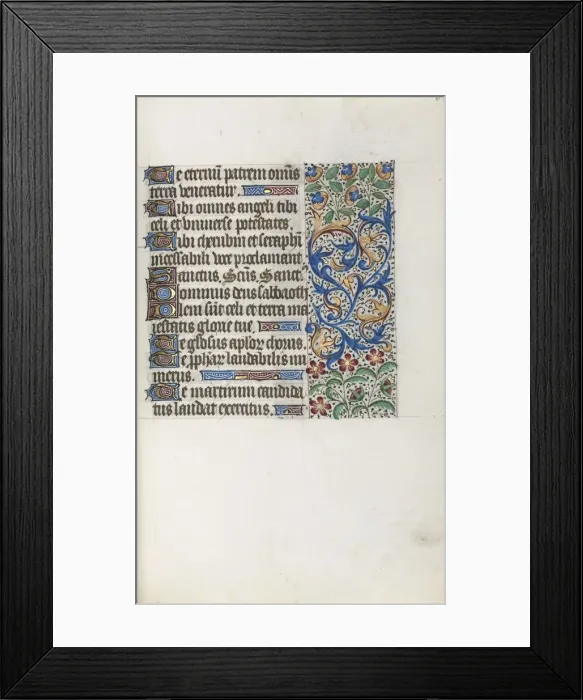 Te eternũ patrem omis
terra veneratur.
Tibi omnes angeli tibi
celi et vniuerse potestates.
Tibi cherubin et seraphĩ
incessabili voce proclamant
Sanctus, Scũs, Sanctˢ
Dominus deus sabbaoth
Pleni sũt celi et terra ma
iestatis glorie tue.
Te gľosus apľor chorus.
Te ꝓphaꝝ laudabilis nu
merus.
Te martirum candida
tus laudat exercitus.